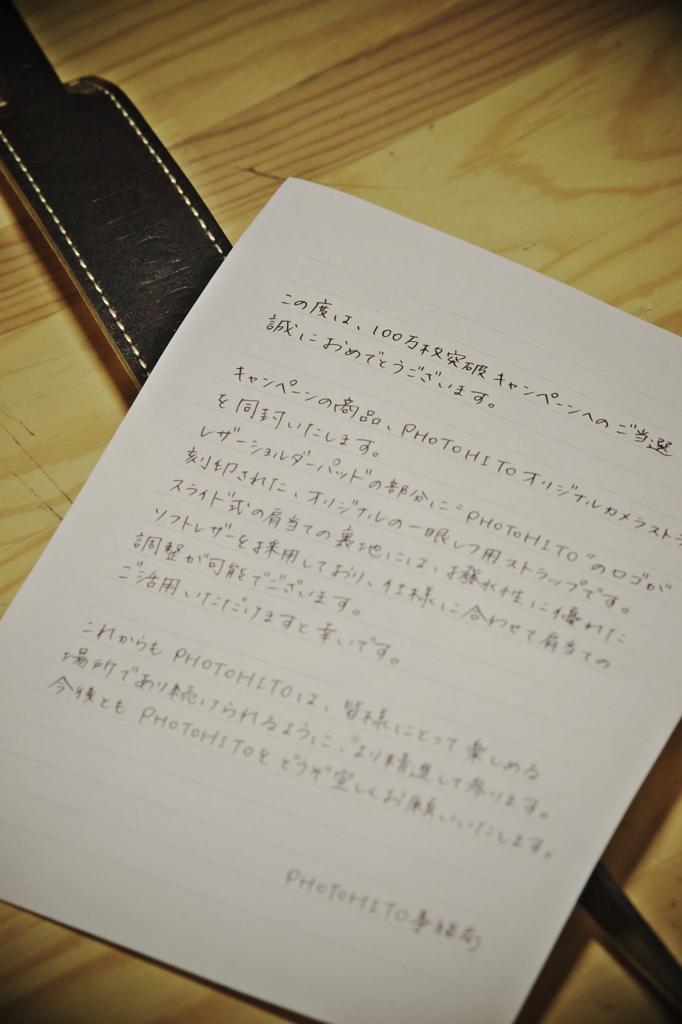 この度は、100万枚突破キャンペーンへのご当選
誠におめでとうございます。
キャンペーンの商品、PHOTOHITOオリジナルカメラストラ
を同封いたします。
レザーショルダーパッドの部分に"PHOTOHITO"のロゴが
刻印された、オリジナルの一眼レフ用ストラップです。
スライド式の肩当ての裏地には、撥水性に優れた
ソフトレザーを採用しており、仕様に合わせて肩当ての
調整が可能でございます。
ご活用いただけますと幸いです。
これからもPHOTOHITOは、皆様にとって楽しめる
場所であり続けられるように、より精進して参ります。
今後ともPHOTOHITOをどうぞ宜しくお願いいたします。
PHOTOHITO事務局